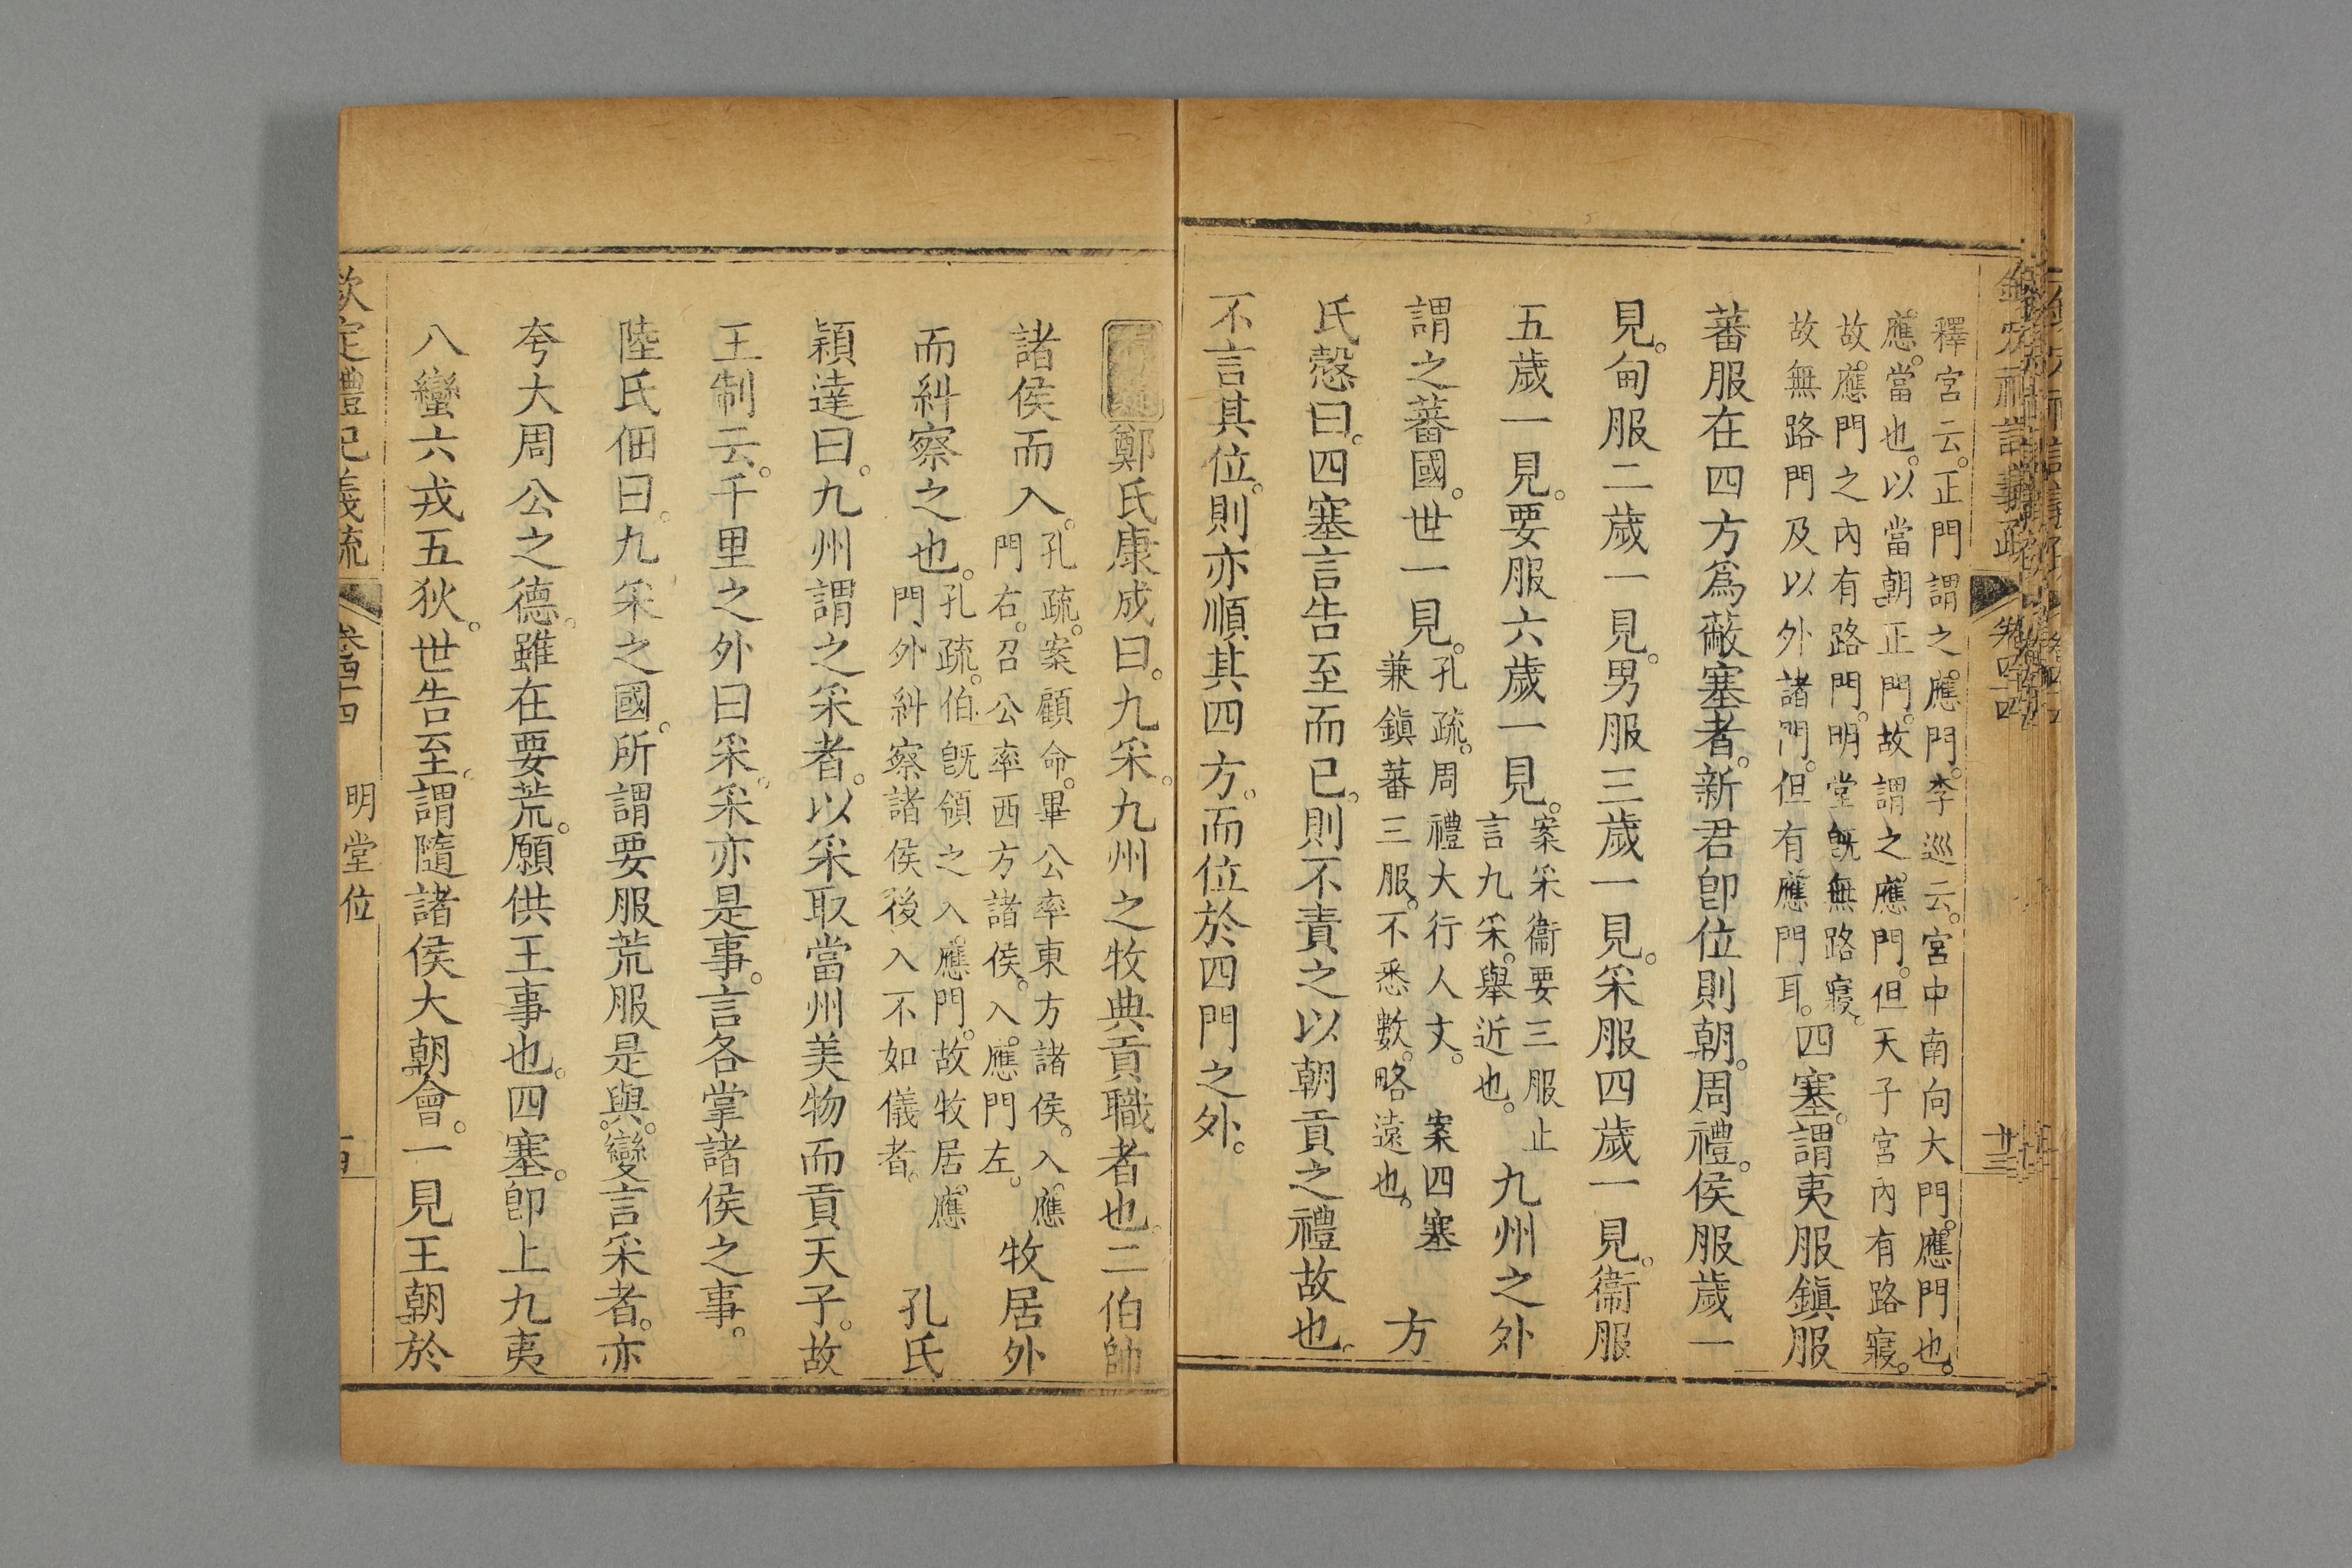 釋宮云。正門謂之應門。李巡云。宮中南向大門。應門也。
應。當也。以當朝正門。故謂之應門。但天子宮內有路寢。
故。應門之內有路門。明堂旣無路寢。
故無路門及以外諸門。但有應門耳。
四塞。謂夷服鎭服
蕃服在四方爲蔽塞者。新君卽位則朝。周禮。侯服歲一
見。甸服二歲一見。男服三歲一見。采服四歲一見。衞服
五歲一見。要服六歲一見。
案采衞要三服止
言九采。舉近也。
九州之外
謂之蕃國。世一見。
孔疏。周禮大行人文。
案四塞
兼鎭蕃三服。不悉數。略遠也。
方
氏慤曰。四塞言告至而已。則不責之以朝貢之禮故也。
不言其位。則亦順其四方。而位於四門之外。
鄭氏康成曰。九采。九州之牧典貢職者也。二伯帥
諸侯而入。
孔疏。案顧命。畢公率東方諸侯。入應
門右。召公率西方諸侯。入。應門左。
牧居外
而糾察之也。
孔疏。伯旣領之入應門。故牧居。應
門外糾察諸侯後入不如儀者。
孔氏
穎達曰。九州謂之采者。以采取當州美物而貢天子。故
王制云。千里之外曰采。采亦是事。言各掌諸侯之事。
陸氏佃曰。九采之國。所謂要服荒服是與。變言采者。亦
夸大周公之德。雖在要荒。願供王事也。四塞。卽上九夷
八蠻六戎五狄。世告至。謂隨諸侯大朝會。一見王朝於
欽定禮記義疏
卷四十四
明堂位